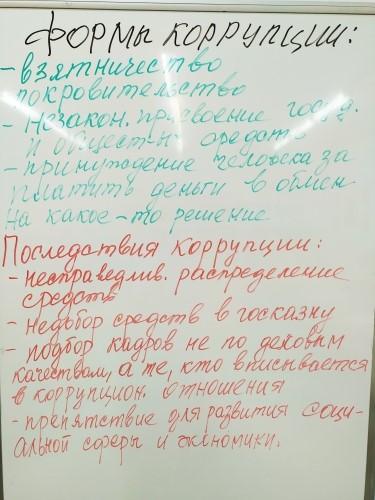 ФОРМЫ КОРРУПЦИИ:
- взятничество
покровительство
- Незакон. присвоение госуд.
и обществ-н средств
- принуждение человека за
платить деньги в обмен
на какое-то решение
Последствия коррупции:
- несправедлив. распределение
средств
- недобор средств в госказну
- подбор кадров не по деловым
качествам, а те, кто вписывается
в коррупцион. отношения
- препятствие для развития соци-
альной сферы и экономики.